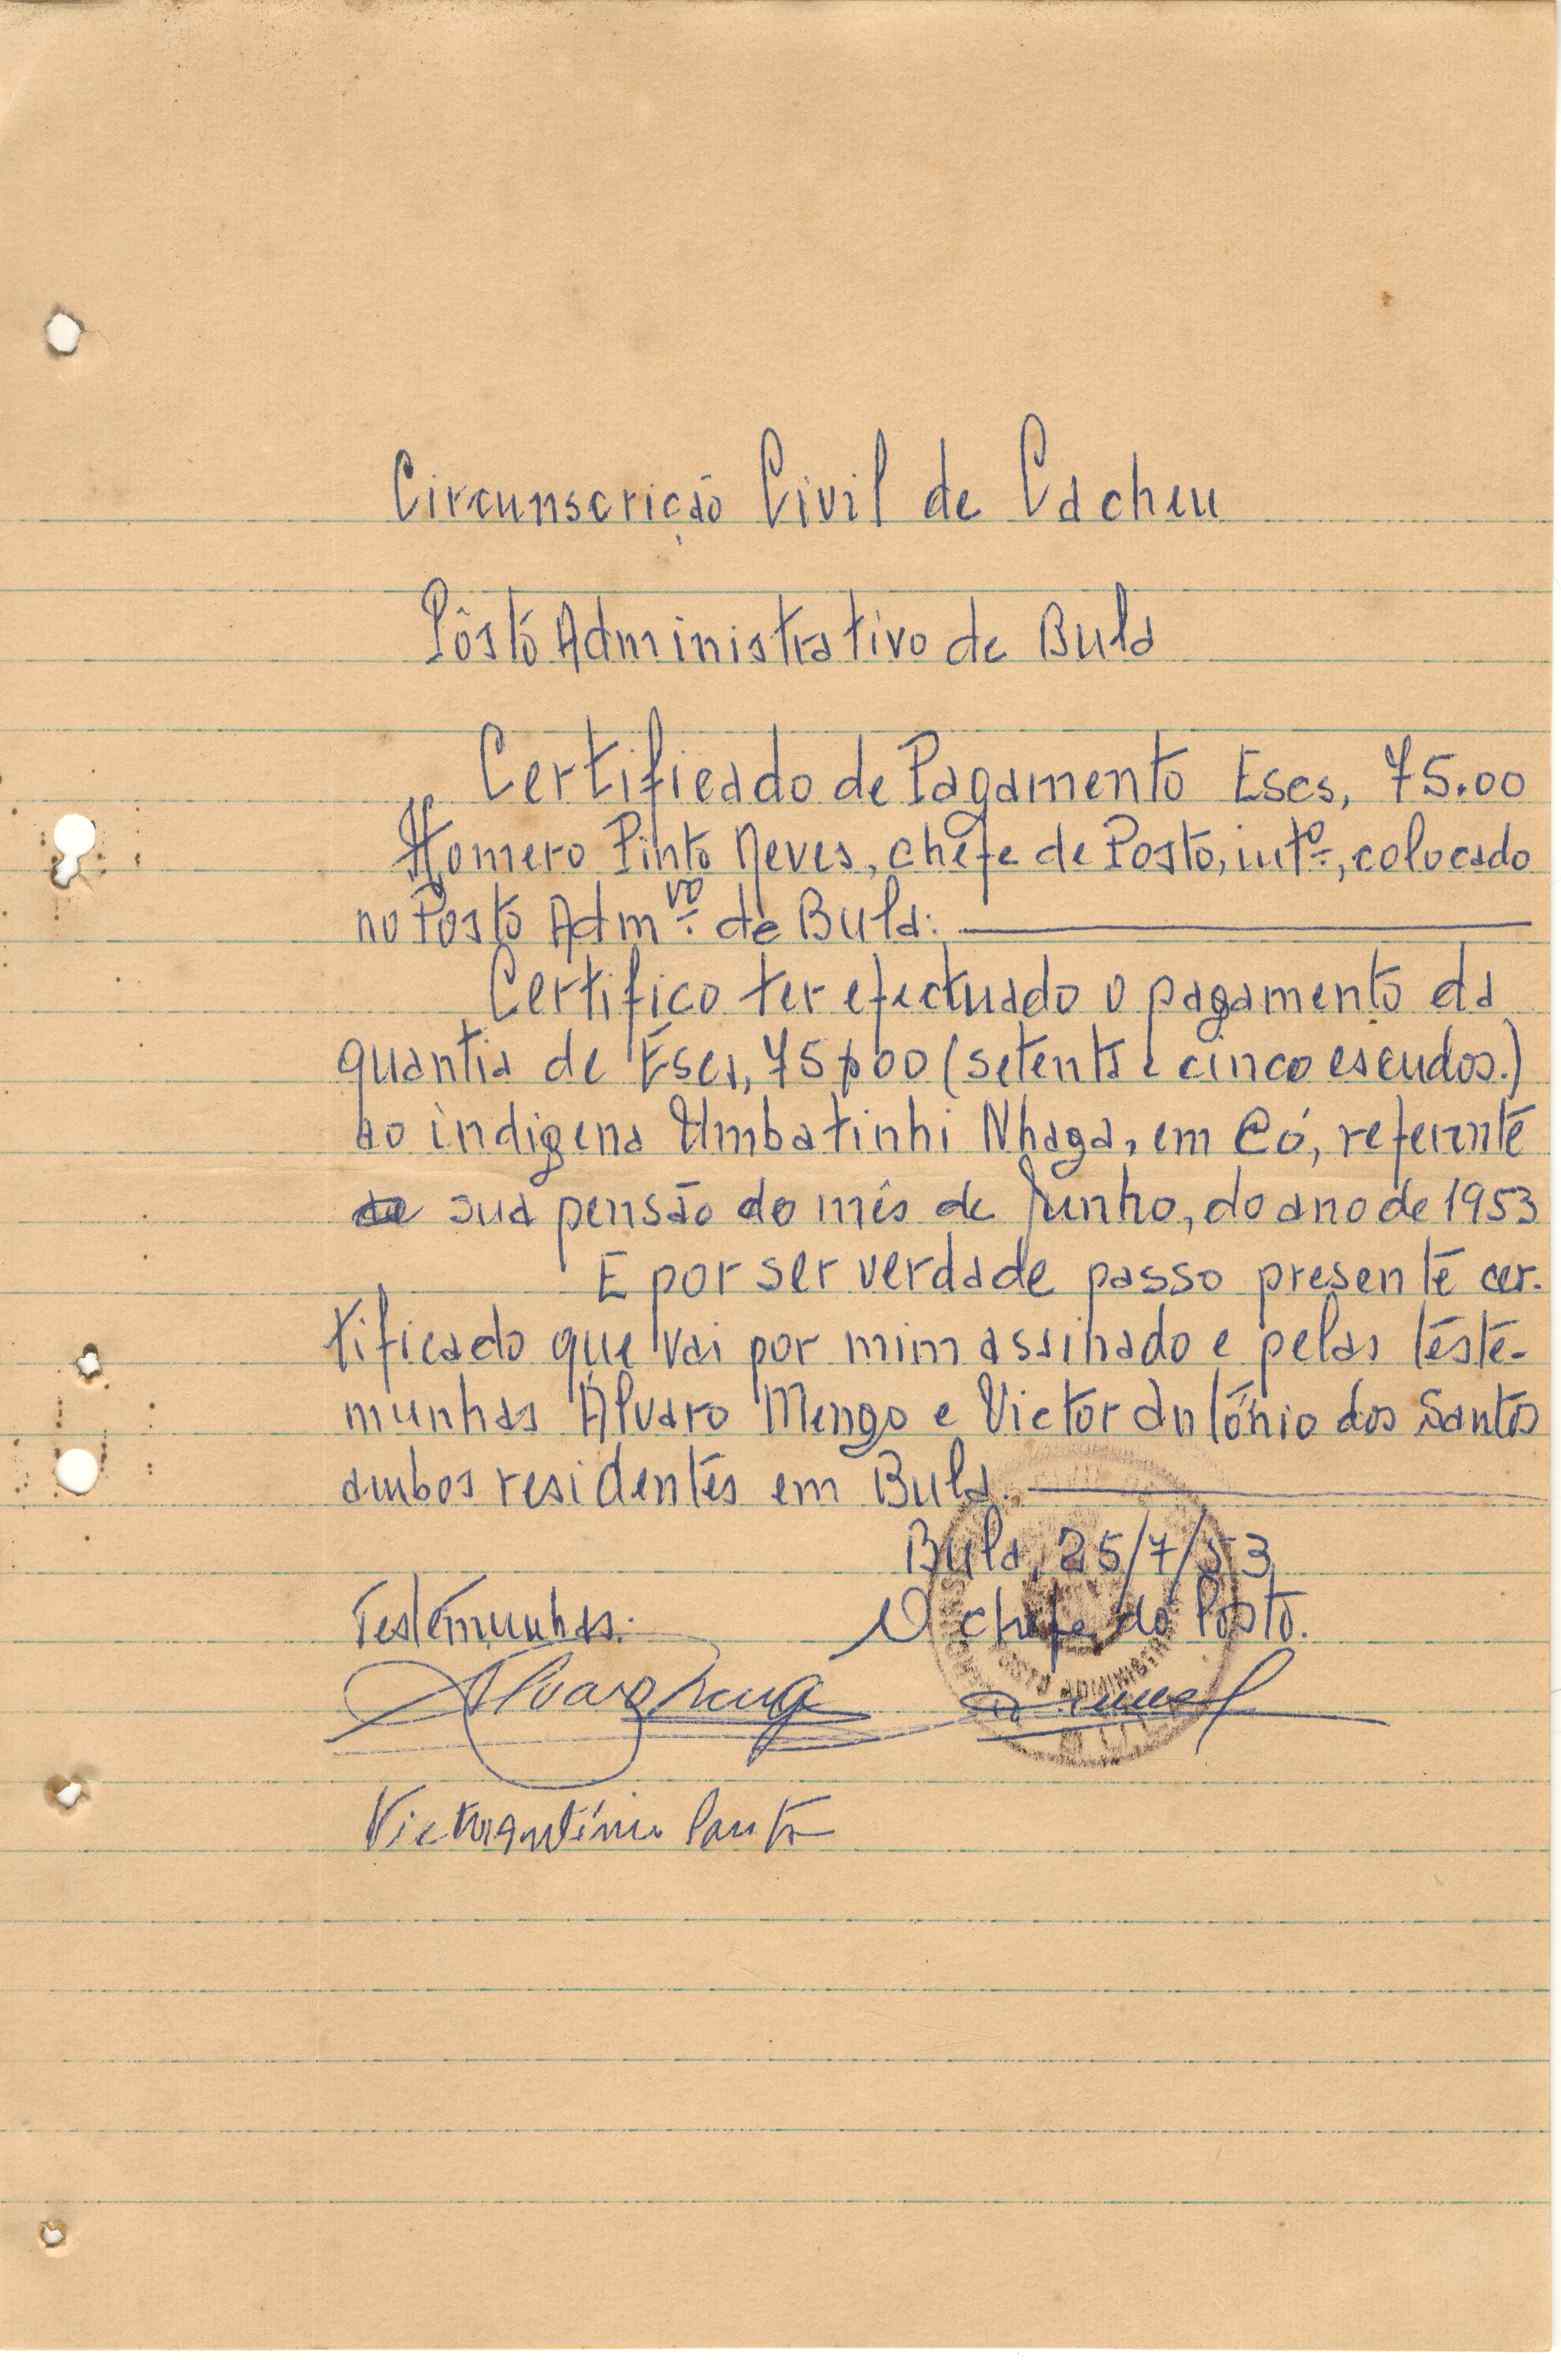 Circunscrição Civil de Cacheu
Pôsto Administrativo de Bula
Certificado de Pagamento Escs, 75.00
Homero Pinto Neves, chefe de Posto, intº, colocado
no Posto Admvº. de Bula:
Certifico ter efectuado o pagamento da
quantia de Escs, 75$00 (setenta e cinco escudos.)
ao indigena Umbatinhi Nhaga, em Có, referente
sua pensão do mês de Junho, do ano de 1953
E por ser verdade passo presente cer-
tificado que vai por mim assinado e pelas teste-
munhas Álvaro Mengo e Victor António dos Santos
ambos residentes em Bula.
Bula, 25/7/53
Testemunhas: O chefe do Posto.
POSTO ADMINISTRA
BULA
Victor António Santos